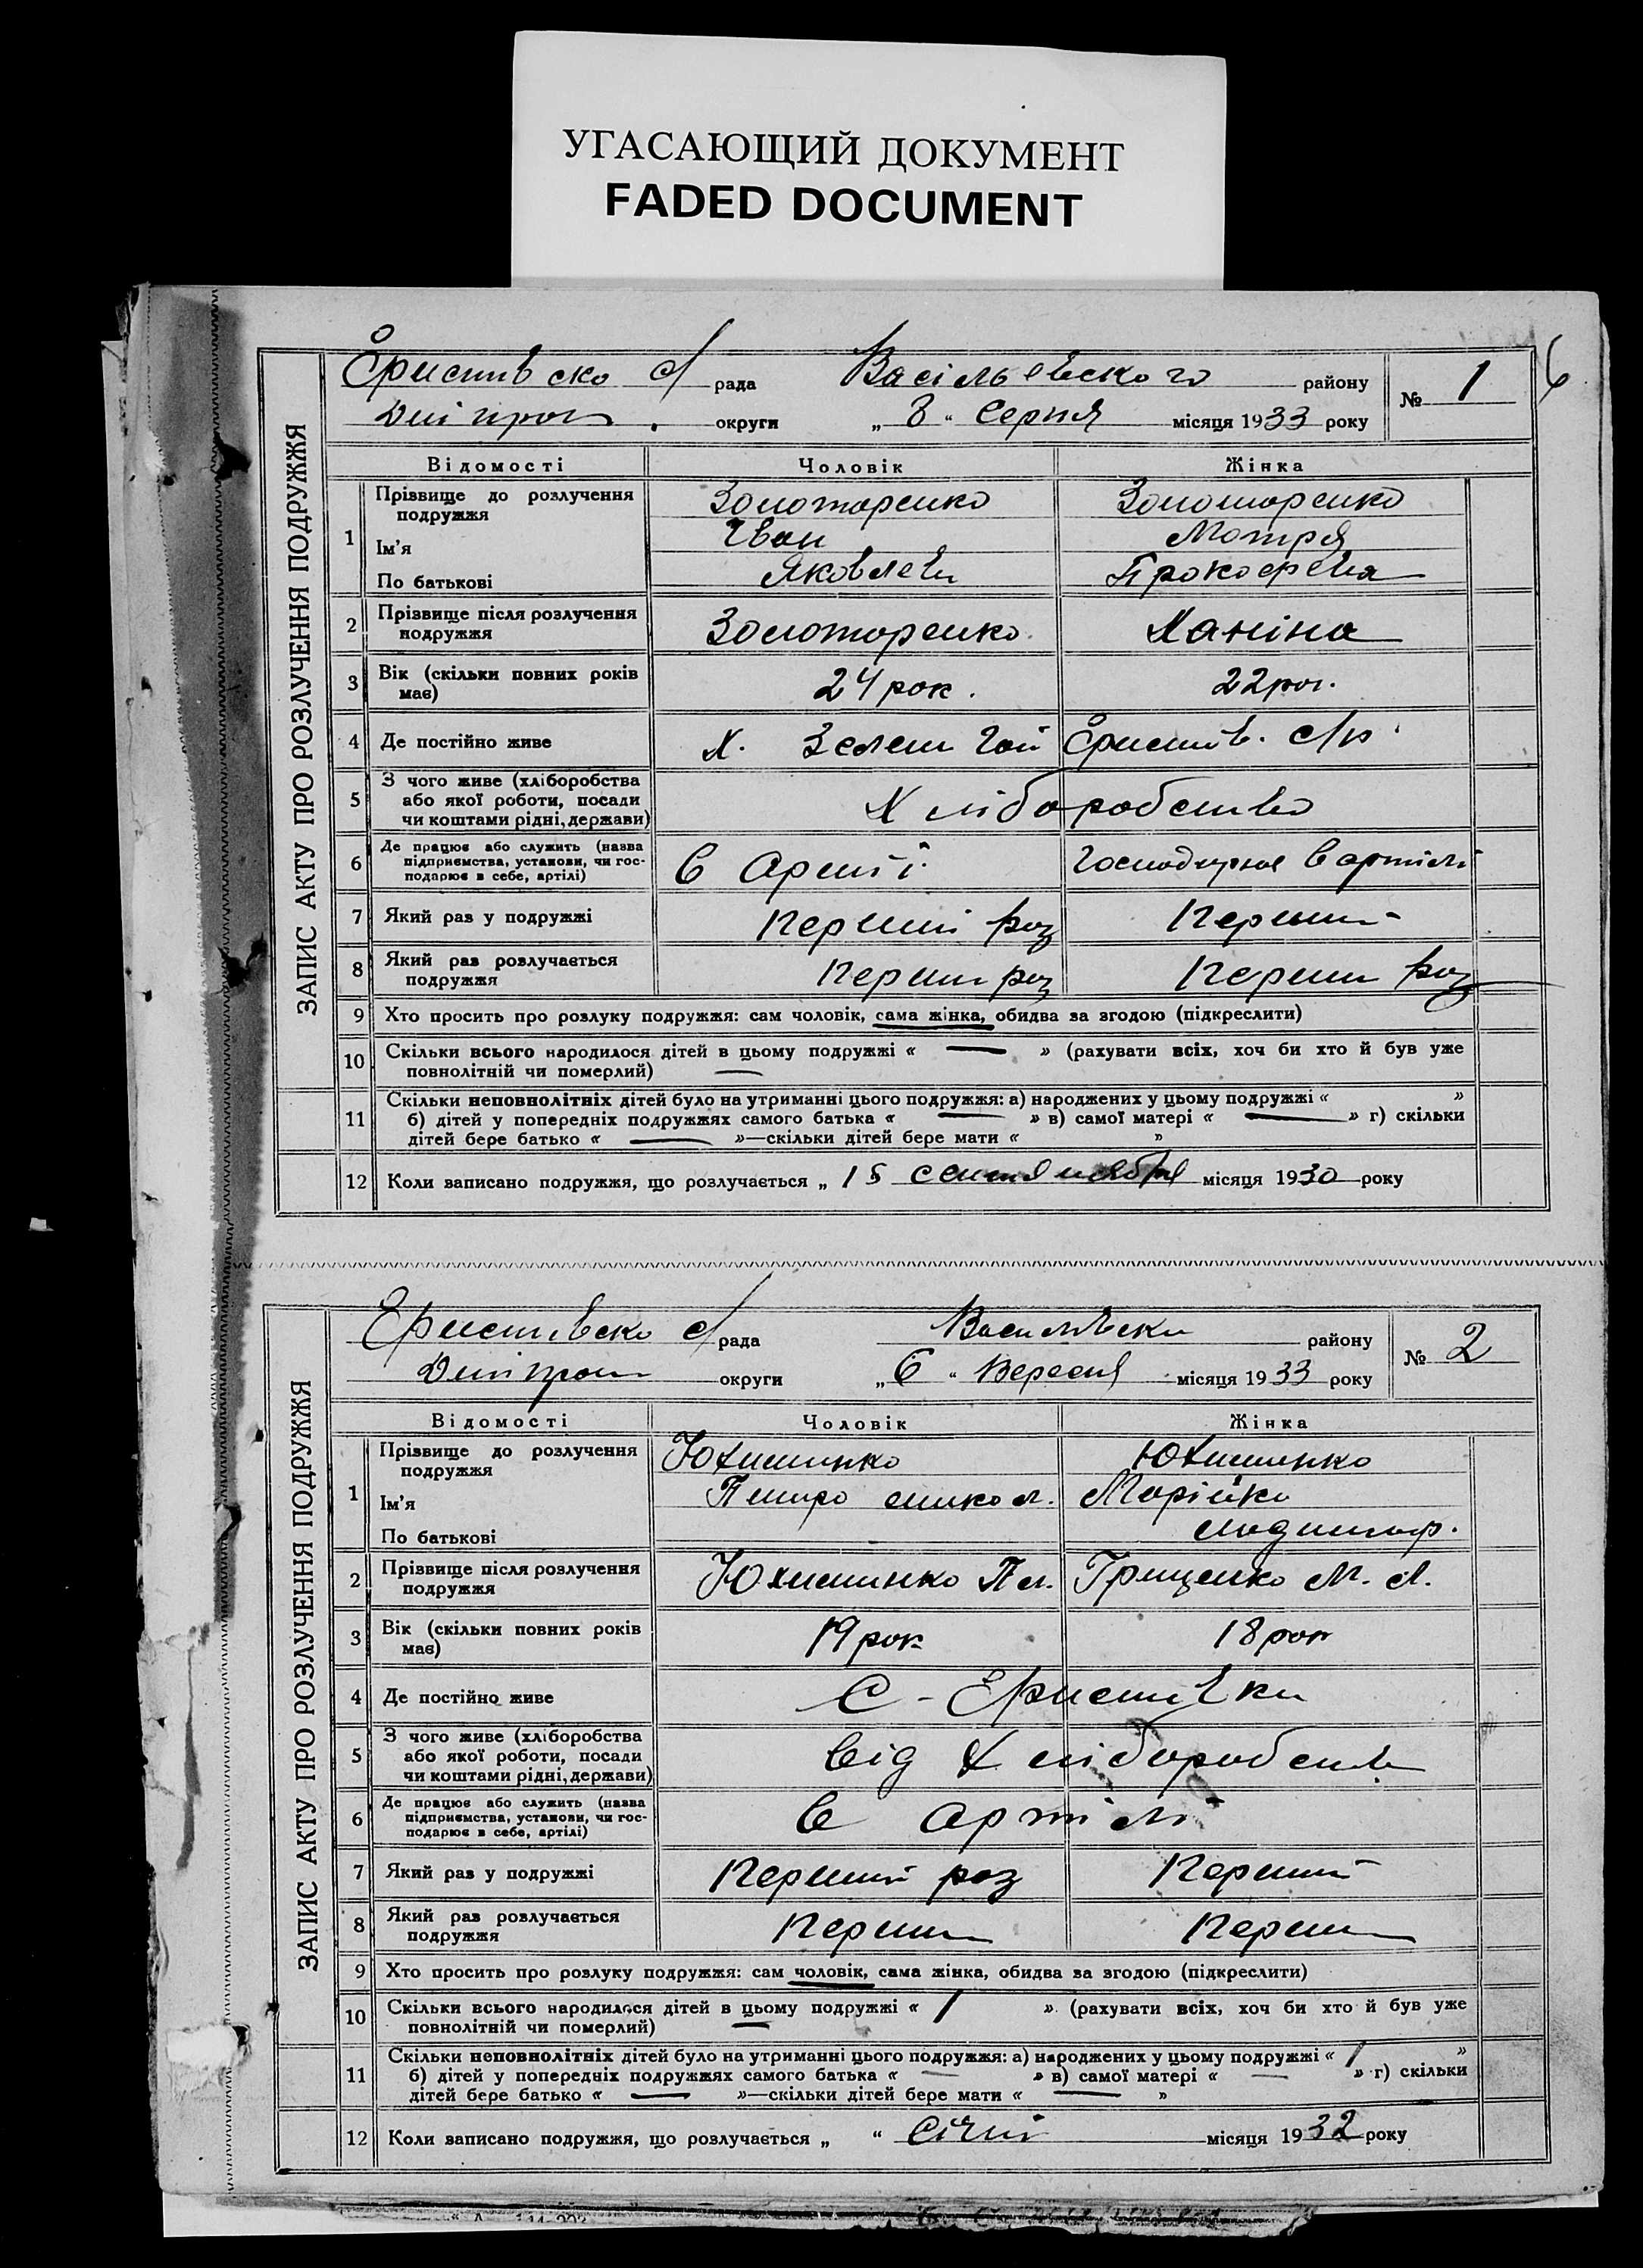 УГАСАЮЩИЙ ДОКУМЕНТ
FADED DOCUMENT
6
ЗАПИС АКТУ ПРО РОЗЛУЧЕННЯ ПОДРУЖЖЯ
Єристівсько с/рада Васільевського району № 1
Дніпроп. округи „8“ Серпня місяця 1933 року
Відомості Чоловік Жінка
1 Прізвище до розлучення подружжя Золотаренко Золотаренко
Ім'я Іван Мотря
По батькові Яковлеви Прокофевна
2 Прізвище після розлучення подружжя Золотаренко Ханіна
3 Вік (скільки повних років має) 24 рок. 22 рок.
4 Де постійно живе Х. Зелени Гаи Єристів. с/р
5 З чого живе (хліборобства або якої роботи, посади чи коштами рідні, держави) Хліборобство
6 Де працює або служить (назва підприємства, установи, чи господарює в себе, артілі) в Армії Господарює в артілі
7 Який раз у подружжі Перший раз Перший
8 Який раз розлучається подружжя Перши раз Перши раз
9 Хто просить про розлуку подружжя: сам чоловік, сама жінка, обидва за згодою (підкреслити)
10 Скільки всього народилося дітей в цьому подружжі « — » (рахувати всіх, хоч би хто й був уже
повнолітній чи померлий)
11 Скільки неповнолітніх дітей було на утриманні цього подружжя: а) народжених у цьому подружжі « »
б) дітей у попередніх подружжях самого батька « — » в) самої матері « — » г) скільки
дітей бере батько « — »—скільки дітей бере мати « »
12 Коли записано подружжя, що розлучається „ 15 місяця 1930 року
ЗАПИС АКТУ ПРО РОЗЛУЧЕННЯ ПОДРУЖЖЯ
Єристівсько с/рада Васильівски району № 2
Дніпроп округи „6“ Вересня місяця 1933 року
Відомості Чоловік Жінка
1 Прізвище до розлучення подружжя Юхименко Юхименко
Ім'я Петро микол. Марійка
По батькові владимир.
2 Прізвище після розлучення подружжя Юхименко П м. Грищенко М. В.
3 Вік (скільки повних років має) 19 рок 18 рок
4 Де постійно живе С - Єристівки
5 З чого живе (хліборобства або якої роботи, посади чи коштами рідні, держави) від Хліборобств
6 Де працює або служить (назва підприємства, установи, чи господарює в себе, артілі) в артілі
7 Який раз у подружжі Перший раз Перший
8 Який раз розлучається подружжя Перши Перши
9 Хто просить про розлуку подружжя: сам чоловік, сама жінка, обидва за згодою (підкреслити)
10 Скільки всього народилося дітей в цьому подружжі « 1 » (рахувати всіх, хоч би хто й був уже
повнолітній чи померлий)
11 Скільки неповнолітніх дітей було на утриманні цього подружжя: а) народжених у цьому подружжі « 1 »
б) дітей у попередніх подружжях самого батька « — » в) самої матері « — » г) скільки
дітей бере батько « — »—скільки дітей бере мати « — »
12 Коли записано подружжя, що розлучається „ “ Січні місяця 1932 року